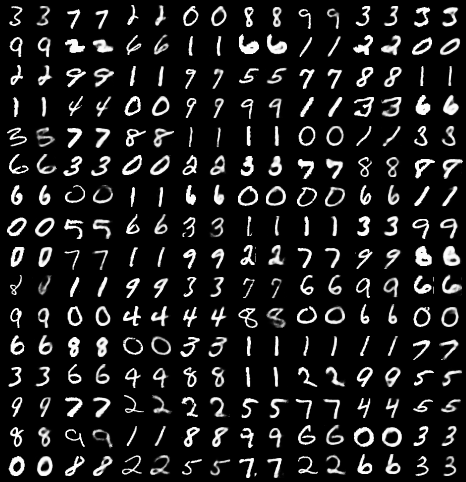 3 3 7 7 2 2 0 0 8 8 9 9 3 3 3 3
9 9 2 2 6 6 1 1 6 6 1 1 2 2 0 0
2 2 9 9 1 1 9 9 5 5 7 7 8 8 1 1
1 1 4 4 0 0 9 9 9 9 1 1 3 3 6 6
3 3 7 7 8 8 1 1 1 1 0 0 1 1 3 3
6 6 3 3 0 0 2 2 3 3 7 7 8 8 9 9
6 6 0 0 1 1 6 6 0 0 0 0 6 6 1 1
0 0 5 5 6 6 3 3 1 1 1 1 3 3 9 9
0 0 7 7 1 1 9 9 2 2 7 7 9 9 8 8
8 8 1 1 9 9 3 3 7 7 6 6 9 9 6 6
9 9 0 0 4 4 4 4 8 8 0 0 6 6 0 0
6 6 8 8 0 0 3 3 1 1 1 1 1 1 7 7
3 3 6 6 4 4 8 8 1 1 2 2 9 9 5 5
9 9 7 7 2 2 2 2 5 5 7 7 4 4 5 5
8 8 9 9 1 1 8 8 9 9 6 6 0 0 3 3
0 0 8 8 2 2 5 5 7 7 2 2 6 6 3 3